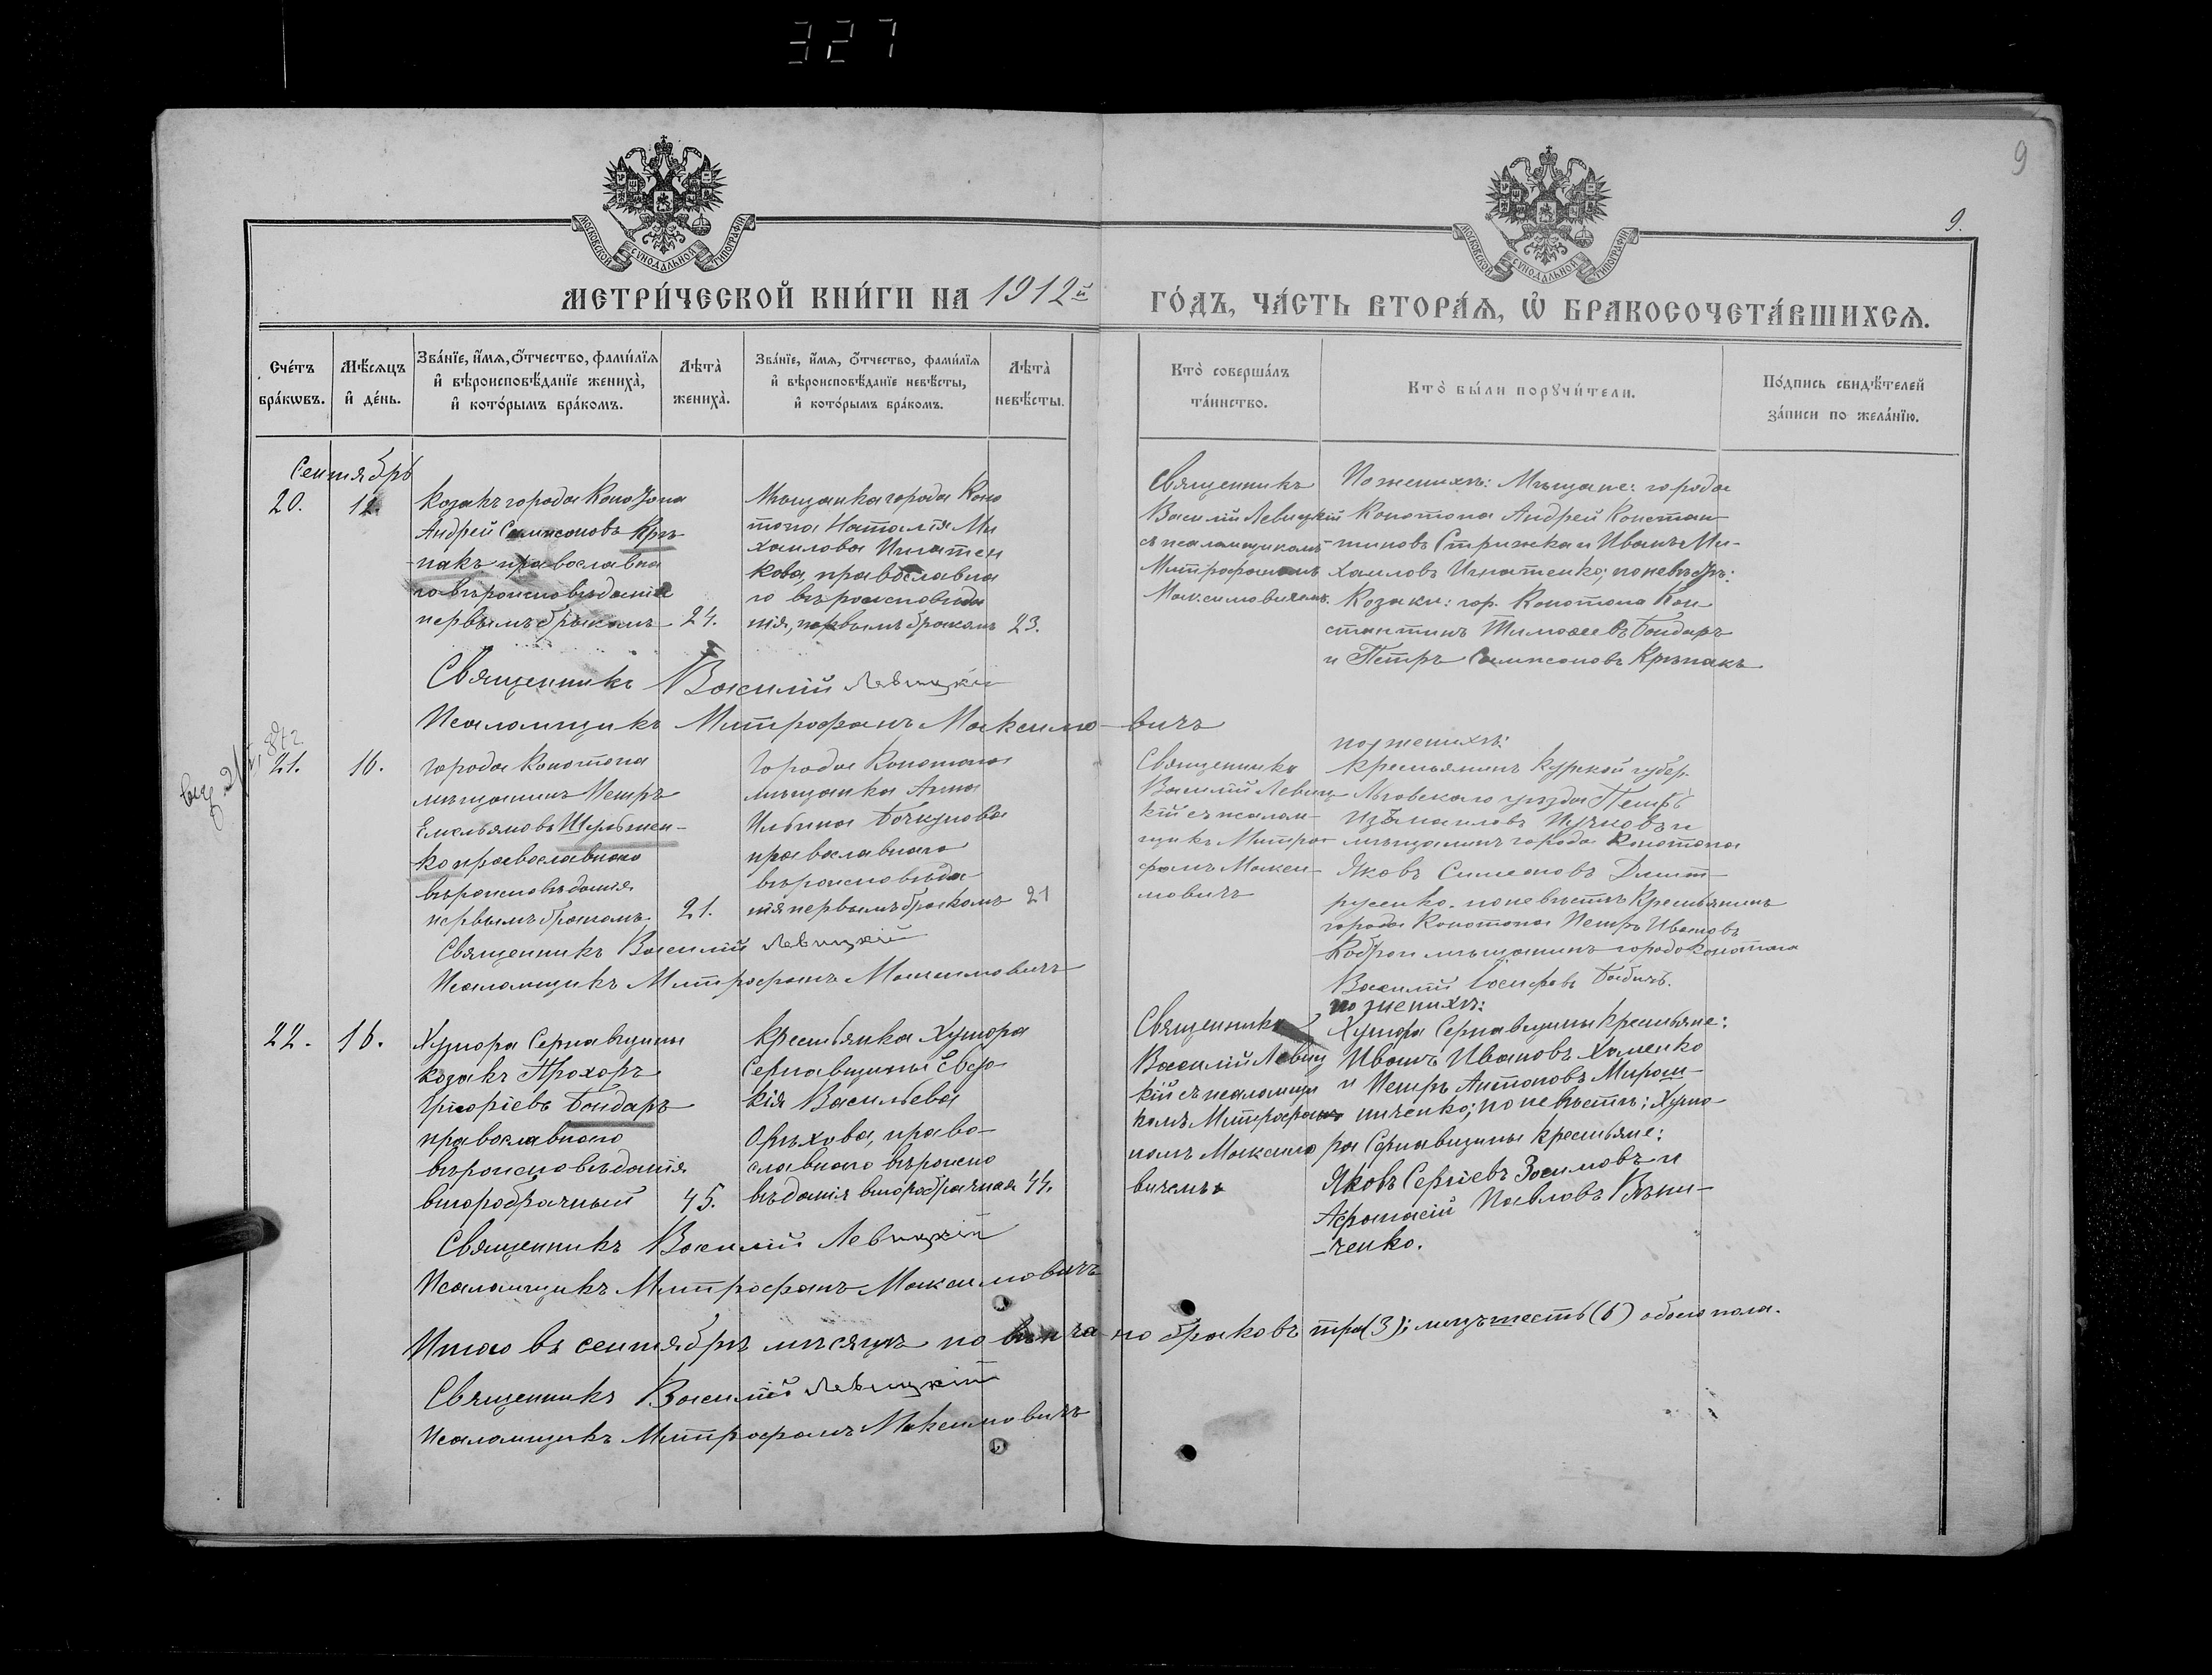 327
9
9.
МОСКОВСКОЙ СѴНОДАЛЬНОЙ ТИПОГРАФІИ
МОСКОВСКОЙ СѴНОДАЛЬНОЙ ТИПОГРАФІИ
МЕТРИ́ЧЕСКОЙ КНИ́ГИ НА 1912й ГО́ДЪ, ЧА́СТЬ ВТОРА́Ѧ, Ѡ҆ БРАКОСОЧЕТА́ВШИХСѦ.
Сче́тъ бра́кѡвъ.
Мѣ́сѧцъ и҆ де́нь.
Зва́нїе, и҆́мѧ, ѻ҆́тчество, фами́лїѧ и҆ вѣроисповѣ́данїе жениха̀, и҆ кото́рымъ бра́комъ.
Лѣта̀ жениха̀.
Зва́нїе, и҆́мѧ, ѻ҆́тчество, фами́лїѧ и҆ вѣроисповѣ́данїе невѣ́сты, и҆ кото́рымъ бра́комъ.
Лѣта̀ невѣ́сты.
Кто̀ соверша́лъ та́инство.
Кто̀ бы́ли порꙋчи́тели.
По́дпись свидѣ́телей за́писи по жела́нїю.
Сентябрь
20.
12.
Козакъ города Конотопа
Андрей Сампсоновъ Крѣ-
пакъ православна
го вѣроисповѣданія
первымъ бракомъ
24.
Мѣщанка города Коно
топа Наталія Ми
хаилова Игнатен
кова, православна
го вѣроисповѣда
нія, первымъ бракомъ
23.
Священникъ
Василій Левицкій
съ псаломщикомъ
Митрофаномъ
Максимовичемъ.
По женихѣ: Мѣщане: города
Конотопа Андрей Констан-
тиновъ Стрижка и Иванъ Ми-
хаиловъ Игнатенко; по невѣстѣ:
Козаки: гор. Конотопа Кон
стантинъ Тимоѳеевъ Бондарь
и Петръ Сампсоновъ Крѣпакъ
Священникъ Василій Левицкій
Псаломщикъ Митрофанъ Максимовичъ
21.
16.
Города Конотопа
мѣщанинъ Петръ
Емельяновъ Щербен-
ко православнаго
вѣроисповѣданія
первымъ бракомъ.
21.
Города Конотопа
мѣщанка Анна
Ильина Бочкунова
православнаго
вѣроисповѣда-
нія первымъ бракомъ
21
Священникъ
Василій Левиц
кій съ псалом-
щикъ Митро
фанъ Макси-
мовичъ
по женихѣ:
крестьянинъ Курской губер.
Льговскаго уѣзда Петръ
мѣщанинъ города Конотопа
Яковъ Симеоновъ Дмит-
русенко. по невѣстѣ Крестьянинъ
города Конотопа Петръ Ивановъ
мѣщанинъ города Конотопа
Василій Іосифовъ Бабичъ.
Священникъ Василій Левицкій
Псаломщикъ Митрофанъ Максимовичъ
22.
16.
Хутора Сарнавщины
козакъ Прохоръ
Григоріевъ Бондарь
православнаго
вѣроисповѣданія
второбрачный
45.
Крестьянка Хутора
Сарнавщины Евдо-
кія Васильева
Орѣхова, право-
славнаго вѣроиспо
вѣданія второбрачная
44.
Священникъ
Василій Левиц
кій съ псаломщи
комъ Митрофа
номъ Максимо
вичемъ
по женихѣ:
Хутора Сарнавщины крестьяне:
Иванъ Ивановъ Хоменко
и Петръ Антоновъ Мирош-
ниченко; по невѣстѣ: Хуто-
ра Сарнавщины крестьяне:
Яковъ Сергіевъ Зосимовъ и
Афанасій Павловъ
-ченко.
Священникъ Василій Левицкій
Псаломщикъ Митрофанъ Максимовичъ
Итого въ сентябрѣ мѣсяцѣ повѣнчано браковъ три (3); лицъ шесть (6) обоего пола.
Священникъ Василій Левицкій
Псаломщикъ Митрофанъ Максимовичъ